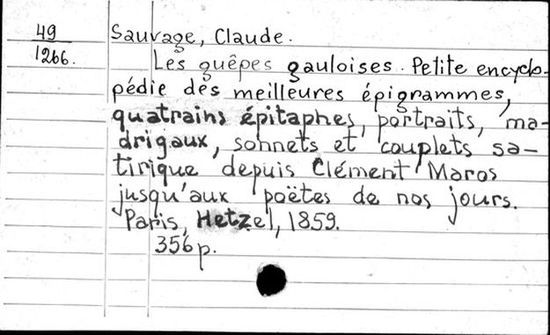 49
1266.
Sauvage, Claude.
Les guêpes gauloises. Petite encyclo-
pédie des meilleures épigrammes,
quatrains épitaphes, portraits, ma-
drigaux, sonnets et couplets sa-
tirique depuis Clément Maros
jusqu'aux poëtes de nos jours.
Paris, Hetzel, 1859.
356 p.